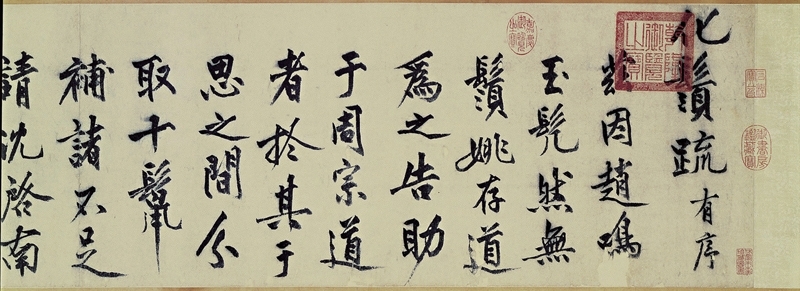 化鬚疏有序
茲因趙鳴
玉髠然無
鬚姚存道
爲之告助
于周宗道
者於其于
思之間分
取十鬣
補諸不足
請沈啓南